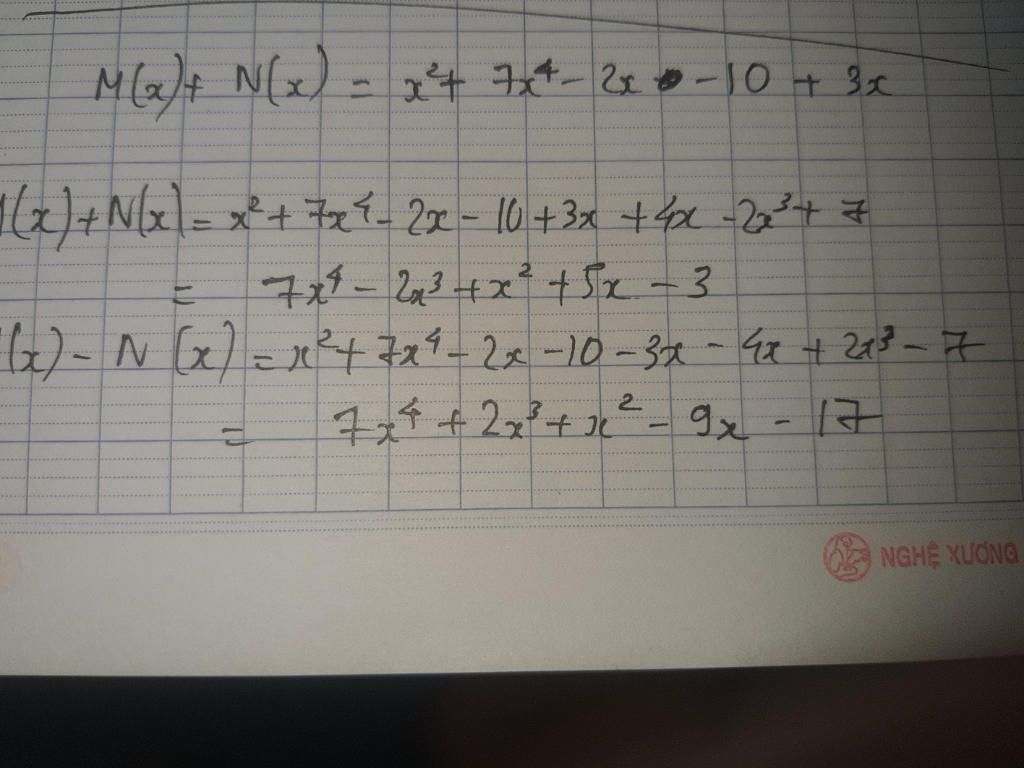 M(x) + N(x) = x² + 7x⁴ - 2x - 10 + 3x
(x) + N(x) = x² + 7x⁴ - 2x - 10 + 3x + 4x - 2x³ + 7
= 7x⁴ - 2x³ + x² + 5x - 3
(x) - N(x) = x² + 7x⁴ - 2x - 10 - 3x - 4x + 2x³ - 7
= 7x⁴ + 2x³ + x² - 9x - 17
NGHỆ XƯƠNG